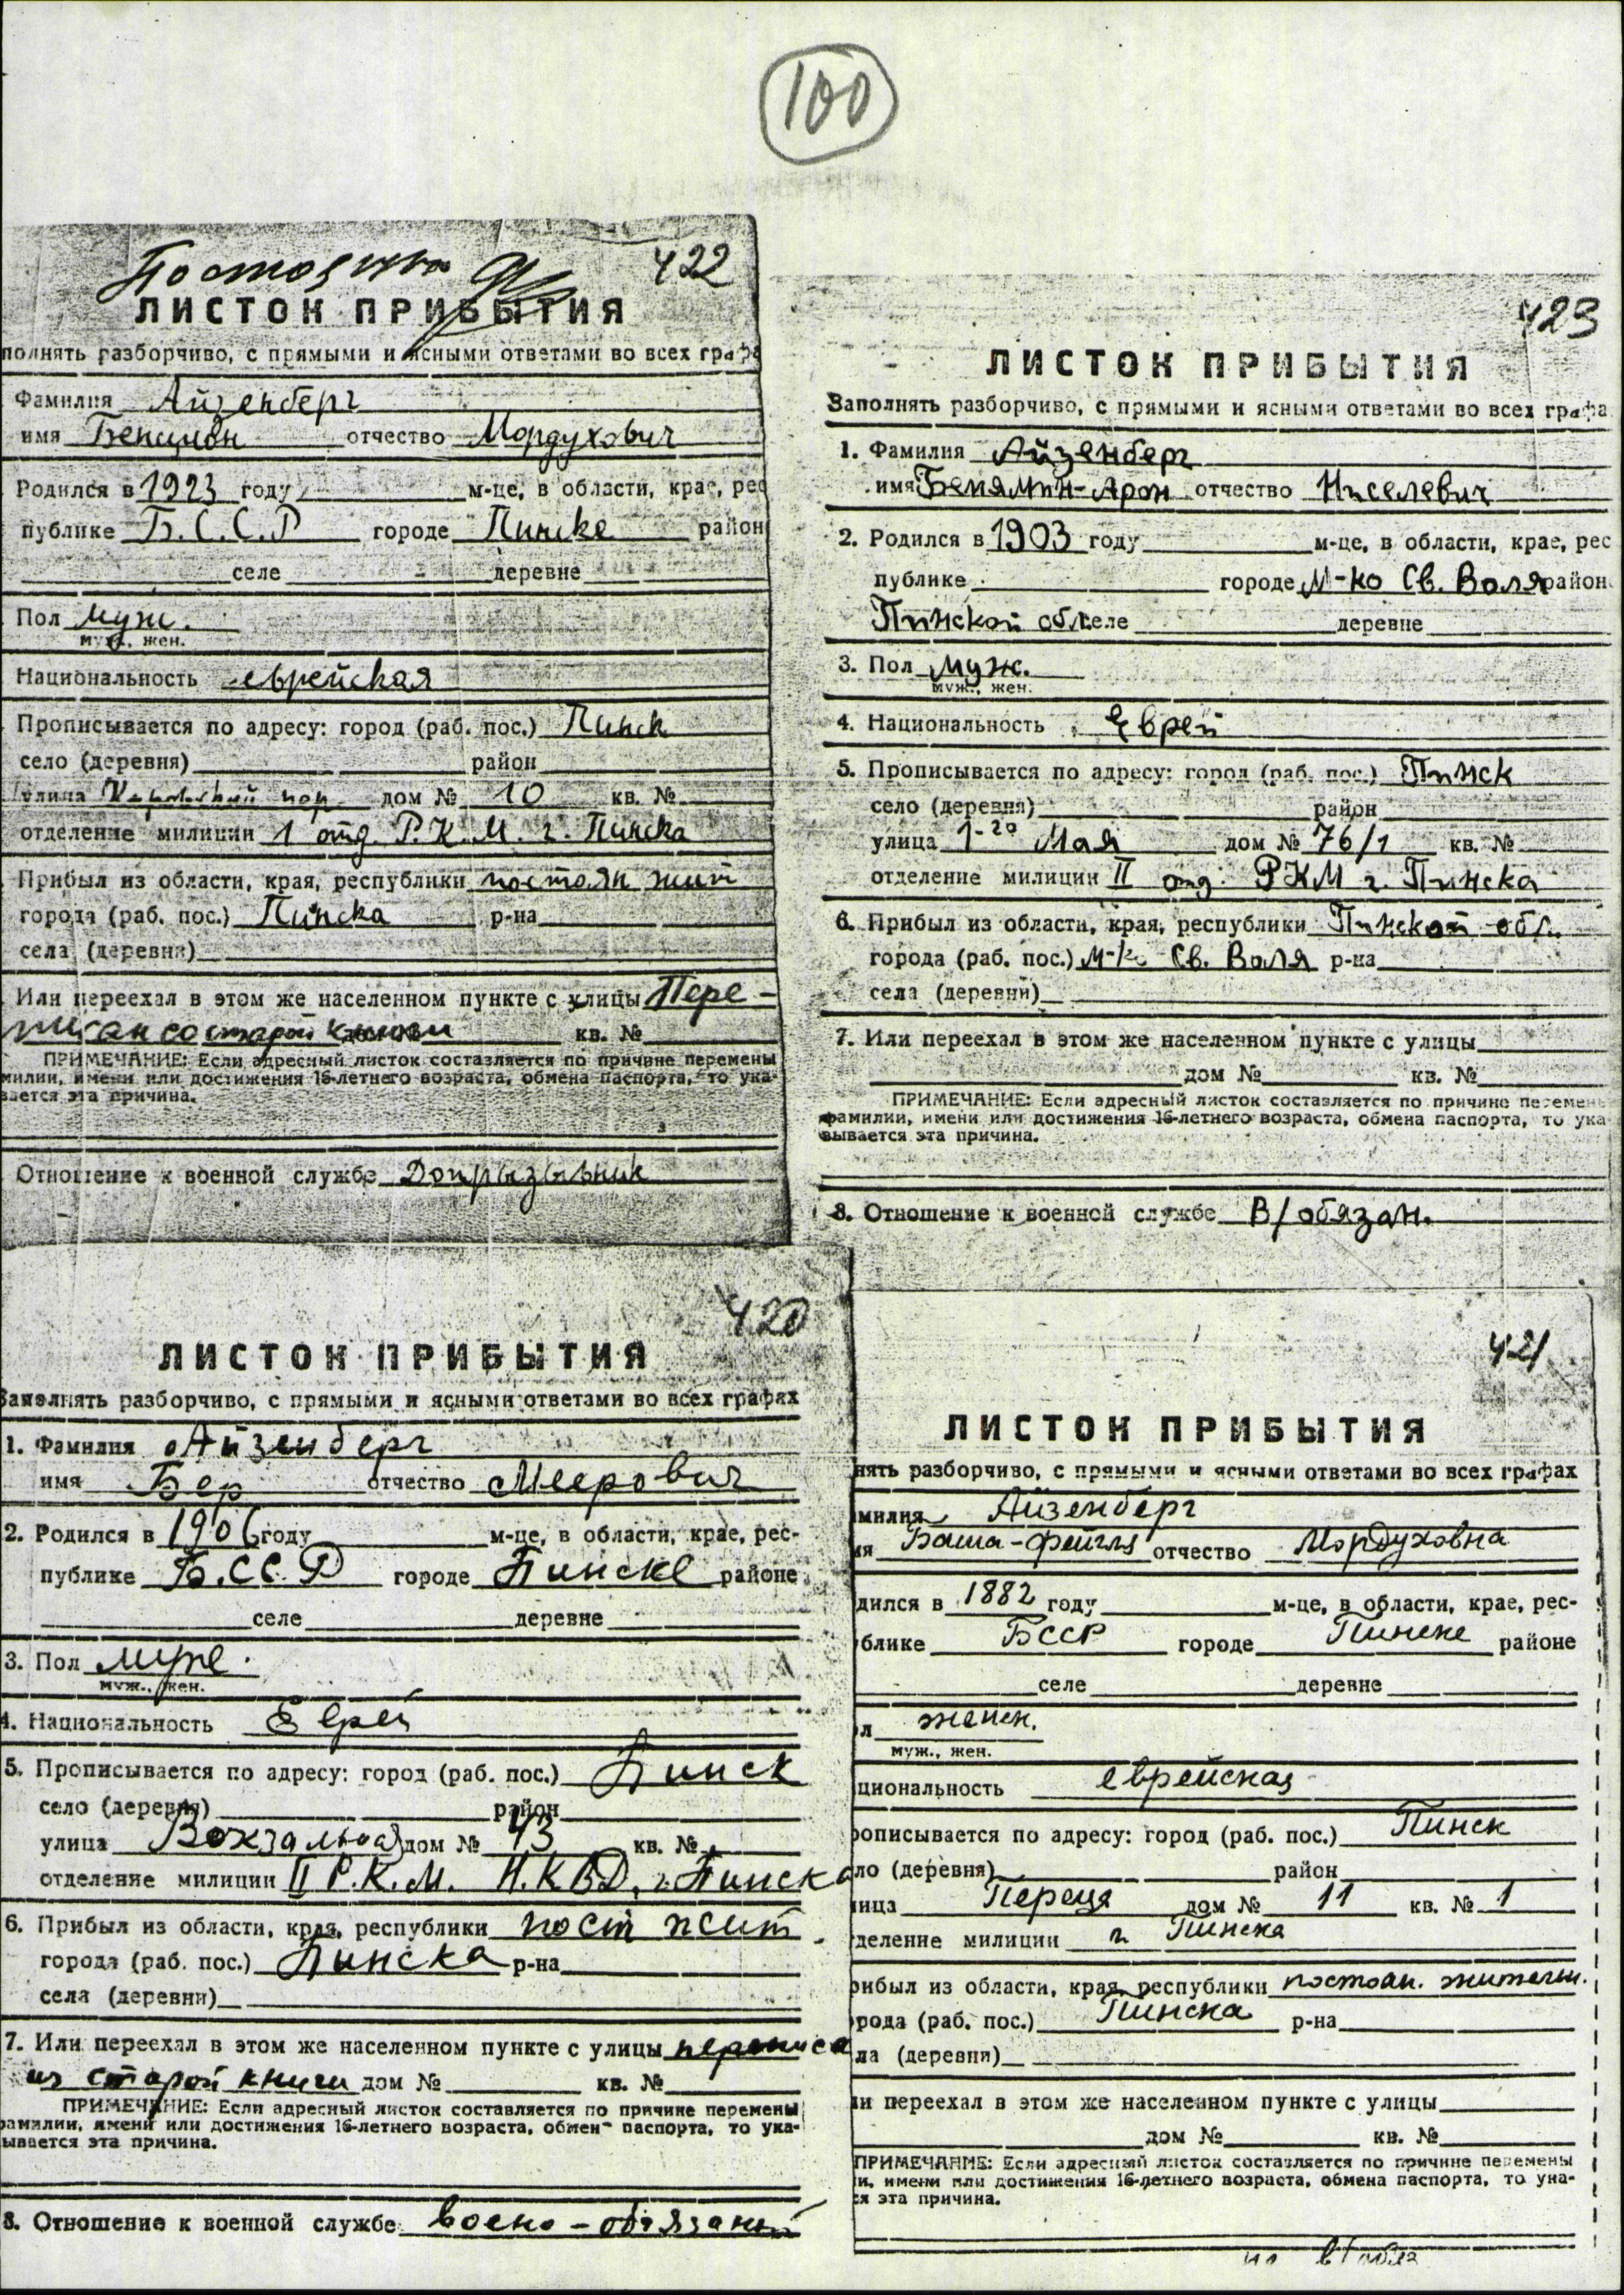 100
Постоянно
422
ЛИСТОК ПРИБЫТИЯ
полнять разборчиво, с прямыми и ясными ответами во всех графа
Фамилия Айзенберг
имя Бенцион отчество Мордухович
Родился в 1923 году м-це, в области, крае, рес
публике Б.С.С.Р городе Пинске район
селе деревне
Пол муж.
муж., жен.
Национальность еврейская
Прописывается по адресу: город (раб. пос.) Пинск
село (деревня) район
улица пер. дом № 10 кв. №
отделение милиции 1 отд. Р.К.М. г. Пинска
Прибыл из области, края, республики постоян жит
города (раб. пос.) Пинска р-на
села (деревни)
Или переехал в этом же населенном пункте с улицы Пере-
писан со старой книги кв. №
ПРИМЕЧАНИЕ: Если адресный листок составляется по причине перемены
милии, имени или достижения 16-летнего возраста, обмена паспорта, то ука-
вается эта причина.
Отношение к военной службе Допризывник
423
ЛИСТОК ПРИБЫТИЯ
Заполнять разборчиво, с прямыми и ясными ответами во всех графа
1. Фамилия Айзенберг
имя Бенямин-Арон отчество Ниселевич
2. Родился в 1903 году м-це, в области, крае, рес
публике городе М-ко Св. Воля район
Пинской обл. селе деревне
3. Пол муж.
муж., жен.
4. Национальность Еврей
5. Прописывается по адресу: город (раб. пос.) Пинск
село (деревня) район
улица 1-го Мая дом № 76/1 кв. №
отделение милиции II отд. РКМ г. Пинска
6. Прибыл из области, края, республики Пинской обл.
города (раб. пос.) М-ко Св. Воля р-на
села (деревни)
7. Или переехал в этом же населенном пункте с улицы
дом № кв. №
ПРИМЕЧАНИЕ: Если адресный листок составляется по причине перемен
фамилии, имени или достижения 16-летнего возраста, обмена паспорта, то ука
зывается эта причина.
8. Отношение к военной службе В/обязан.
420
ЛИСТОК ПРИБЫТИЯ
Заполнять разборчиво, с прямыми и ясными ответами во всех графах
1. Фамилия Айзенберг
имя Бер отчество Меерович
2. Родился в 1906 году м-це, в области, крае, рес-
публике Б.ССР городе Пинске районе
селе деревне
3. Пол муж.
муж., жен.
4. Национальность Еврей
5. Прописывается по адресу: город (раб. пос.) Пинск
село (деревня) район
улица Вокзальная дом № 43 кв. №
отделение милиции II Р.К.М. Н.КВД, г. Пинска
6. Прибыл из области, края, республики пост жит
города (раб. пос.) Пинска р-на
села (деревни)
7. Или переехал в этом же населенном пункте с улицы переписа
из старой книги дом № кв. №
ПРИМЕЧАНИЕ: Если адресный листок составляется по причине перемены
фамилии, имени или достижения 16-летнего возраста, обмен паспорта, то ука-
зывается эта причина.
8. Отношение к военной службе военно-обязаный
421
ЛИСТОК ПРИБЫТИЯ
нять разборчиво, с прямыми и ясными ответами во всех графах
милия Айзенберг
мя Баша-Фейгля отчество Мордуховна
дился в 1882 году м-це, в области, крае, рес-
блике БССР городе Пинске районе
селе деревне
л женск.
муж., жен.
циональность еврейская
рописывается по адресу: город (раб. пос.) Пинск
ло (деревня) район
ица Переца дом № 11 кв. № 1
деление милиции г. Пинска
рибыл из области, края, республики постоян. жительн.
рода (раб. пос.) Пинска р-на
ла (деревни)
ли переехал в этом же населенном пункте с улицы
дом № кв. №
ПРИМЕЧАНИЕ: Если адресный листок составляется по причине перемены
и, имени или достижения 16-летнего возраста, обмена паспорта, то ука-
ся эта причина.